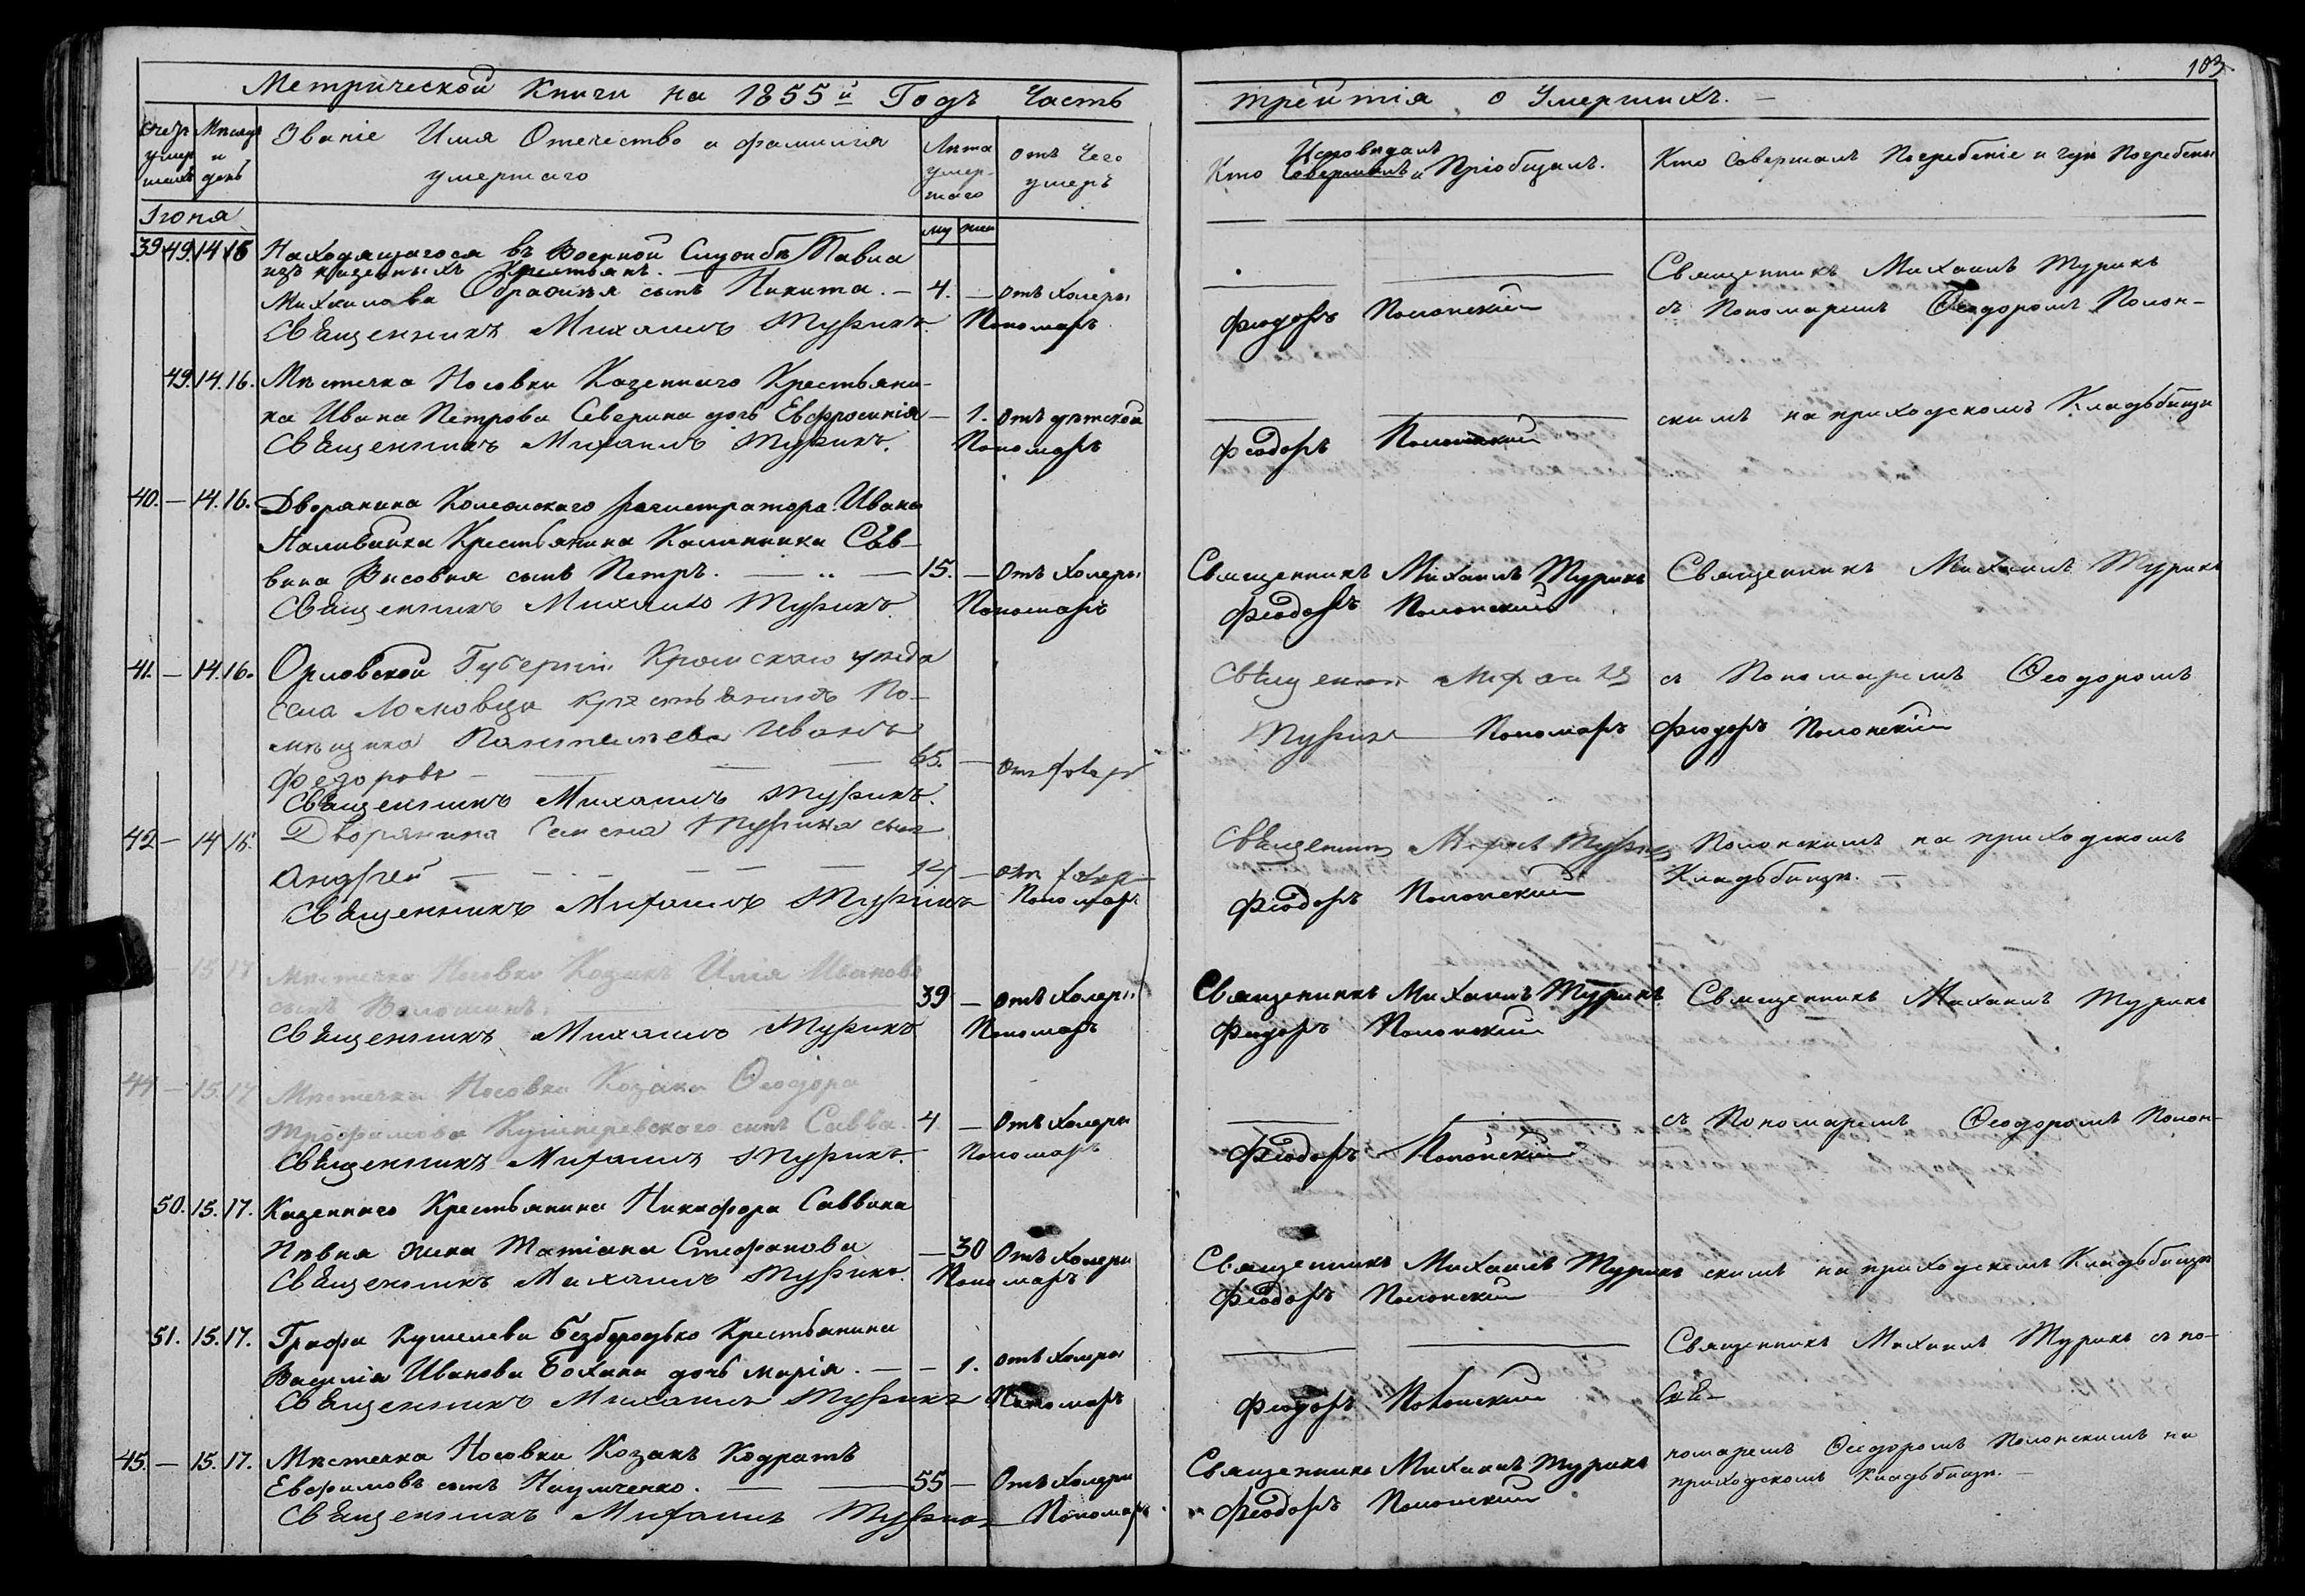 103
Метрической Книги на 1855й Годъ Часть
третія о Умершихъ. —
Счетъ умершихъ
Мѣсяцъ и день
Званіе Имя Отечество и фамилія умершаго
Лѣта умершаго
отъ Чего умеръ
Кто Исповѣдалъ и Пріобщалъ.
Кто Совершалъ Погребеніе и гдѣ Погребены
Іюня
му жен
39 49 14 16 Находящагося въ Военной Службѣ Павла
изъ казенныхъ Крестьянъ.
Михаилова сынъ Никита. — 4. — отъ Холеры
Священникъ Михаилъ Турикъ. Пономарь
Феодоръ Полонскій
Священникъ Михаилъ Турикъ
съ Пономаремъ Ѳеодоромъ Полон-
49. 14. 16. Мѣстечка Носовки Казеннаго Крестьяни-
на Ивана Петрова Северина дочь Евфросинія — 1. отъ дѣтской
Священникъ Михаилъ Турикъ. Пономарь
Феодоръ Полонскій
скимъ на приходскомъ Кладьбищѣ
40. — 14. 16. Дворянина Колежскаго регистратора Ивана
Наливайка Крестьянина Калинника Сав-
вина сынъ Петръ. — 15. — отъ Холеры
Священникъ Михаилъ Турикъ. Пономарь
Священникъ Михаилъ Турикъ
Феодоръ Полонскій
Священникъ Михаилъ Турикъ
41. — 14. 16. Орловской Губерніи Кромскаго уезда
Села крестьянинъ По-
мѣщика Пантелеева Иванъ
Федоровъ — 65. — отъ холеры
Священникъ Михаилъ Турикъ.
Священникъ Михаилъ
Турикъ Пономарь Феодоръ Полонскій
съ Пономаремъ Ѳеодоромъ
42 — 14 16. Дворянина Семена Турика сынъ
Андрей — — — — — 14 — отъ холеры
Священникъ Михаилъ Турикъ Пономарь
Священникъ Михаилъ Турикъ
Феодоръ Полонскій
Полонскимъ на приходскомъ
Кладьбищѣ. —
— 15 17 Мѣстечка Носовки Козакъ Илія Ивановъ
сынъ Волошинъ. 39 — отъ Холеры
Священникъ Михаилъ Турикъ Пономарь
Священникъ Михаилъ Турикъ
Феодоръ Полонскій
Священникъ Михаилъ Турикъ
44 — 15. 17 Мѣстечка Носовки Козака Ѳеодора
Трофимова сынъ Савва. 4 — отъ Холеры
Священникъ Михаилъ Турикъ. Пономарь
Феодоръ Полонскій
съ Пономаремъ Ѳеодоромъ Полон-
50. 15. 17. Казеннаго Крестьянина Никифора Саввина
Пѣвня жена Татіана Стефанова — 30 отъ Холеры
Священникъ Михаилъ Турикъ. Пономарь
Священникъ Михаилъ Турикъ
Феодоръ Полонскій
скимъ на приходскомъ Кладьбищѣ
51. 15. 17. Графа Кушелева Безбородько Крестьянина
Василія Иванова Бохана дочь Марія. — — 1. отъ Холеры
Священникъ Михаилъ Турикъ Пономарь
Феодоръ Полонскій
Священникъ Михаилъ Турикъ съ по-
45. — 15. 17. Мѣстечка Носовки Козакъ Кодратъ
Евфимовъ сынъ Наумченко. — 55 — отъ Холеры
Священникъ Михаилъ Турикъ Пономарь
Священникъ Михаилъ Турикъ
Феодоръ Полонскій
номаремъ Ѳеодоромъ Полонскимъ на
приходскомъ Кладьбищѣ. —